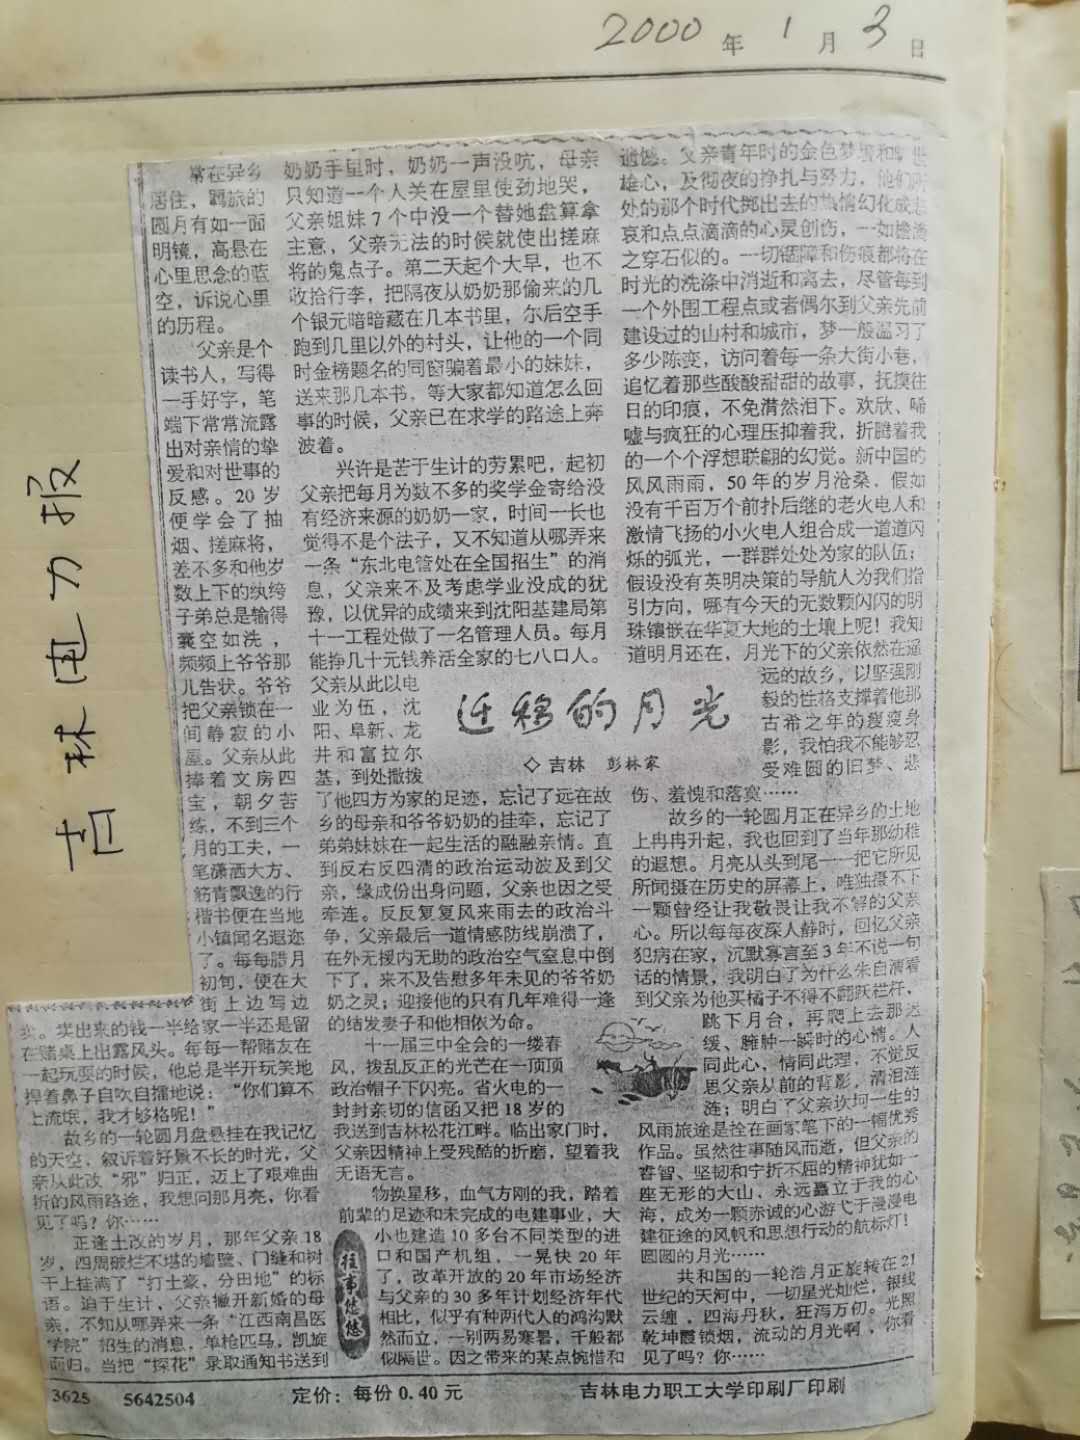 2000年1月3日
吉林电力报
常在异乡
居住，羁旅的
圆月有如一面
明镜，高悬在
心里思念的蓝
空，诉说心里
的历程。
父亲是个
读书人，写得
一手好字，笔
端下常常流露
出对亲情的挚
爱和对世事的
反感。20岁
便学会了抽
烟、搓麻将，
差不多和他岁
数上下的纨绔
子弟总是输得
囊空如洗，
频频上爷爷那
儿告状。爷爷
把父亲锁在一
间静寂的小
屋。父亲从此
捧着文房四
宝，朝夕苦
练，不到三个
月的工夫，一
笔潇洒大方、
筋青飘逸的行
楷书便在当地
小镇闻名遐迩
了。每每腊月
初旬，便在大
街上边写边
卖。卖出来的钱一半给家一半还是留
在赌桌上出露风头。每每一帮赌友在
一起玩耍的时候，他总是半开玩笑地
捏着鼻子自吹自擂地说：“你们算不
上流氓，我才够格呢！”
故乡的一轮圆月盘悬挂在我记忆
的天空，叙诉着好景不长的时光，父
亲从此改“邪”归正，迈上了艰难曲
折的风雨路途，我想问那月亮，你看
见了吗？你……
正逢土改的岁月，那年父亲18
岁，四周破烂不堪的墙壁、门缝和树
干上挂满了“打土豪，分田地”的标
语。迫于生计，父亲撇开新婚的母
亲，不知从哪弄来一条“江西南昌医
学院”招生的消息，单枪匹马，凯旋
而归。当把“探花”录取通知书送到
奶奶手里时，奶奶一声没吭，母亲
只知道一个人关在屋里使劲地哭，
父亲姐妹7个中没一个替她盘算拿
主意，父亲无法的时候就使出搓麻
将的鬼点子。第二天起个大早，也不
收拾行李，把隔夜从奶奶那偷来的几
个银元暗暗藏在几本书里，尔后空手
跑到几里以外的村头，让他的一个同
时金榜题名的同窗骗着最小的妹妹，
送来那几本书，等大家都知道怎么回
事的时候，父亲已在求学的路途上奔
波着。
兴许是苦于生计的劳累吧，起初
父亲把每月为数不多的奖学金寄给没
有经济来源的奶奶一家，时间一长也
觉得不是个法子，又不知道从哪弄来
一条“东北电管处在全国招生”的消
息，父亲来不及考虑学业没成的犹
豫，以优异的成绩来到沈阳基建局第
十一工程处做了一名管理人员。每月
能挣几十元钱养活全家的七八口人。
父亲从此以电
业为伍，沈
阳、阜新、龙
井和富拉尔
基，到处撒拨
了他四方为家的足迹，忘记了远在故
乡的母亲和爷爷奶奶的挂牵，忘记了
弟弟妹妹在一起生活的融融亲情。直
到反右反四清的政治运动波及到父
亲，缘成份出身问题，父亲也因之受
牵连。反反复复风来雨去的政治斗
争，父亲最后一道情感防线崩溃了，
在外无援内无助的政治空气窒息中倒
下了，来不及告慰多年未见的爷爷奶
奶之灵；迎接他的只有几年难得一逢
的结发妻子和他相依为命。
十一届三中全会的一缕春
风，拨乱反正的光芒在一顶顶
政治帽子下闪亮。省火电的一
封封亲切的信函又把18岁的
我送到吉林松花江畔。临出家门时，
父亲因精神上受残酷的折磨，望着我
无语无言。
物换星移，血气方刚的我，踏着
前辈的足迹和未完成的电建事业，大
小也建造10多台不同类型的进
口和国产机组，一晃快20年
了，改革开放的20年市场经济
与父亲的30多年计划经济年代
相比，似乎有种两代人的鸿沟默
然而立，一别两易寒暑，千般都
似隔世。因之带来的某点惋惜和
往事悠悠
迁移的月光
◇吉林 彭林家
遗憾。父亲青年时的金色梦境和
雄心，及彻夜的挣扎与努力，他们所
处的那个时代掷出去的热情幻化成悲
哀和点点滴滴的心灵创伤，一如檐滴
之穿石似的。一切痼障和伤痕都将在
时光的洗涤中消逝和离去，尽管每到
一个外围工程点或者偶尔到父亲先前
建设过的山村和城市，梦一般温习了
多少陈变，访问着每一条大街小巷，
追忆着那些酸酸甜甜的故事，抚摸往
日的印痕，不免潸然泪下。欢欣、唏
嘘与疯狂的心理压抑着我，折腾着我
的一个个浮想联翩的幻觉。新中国的
风风雨雨，50年的岁月沧桑，假如
没有千百万个前扑后继的老火电人和
激情飞扬的小火电人组合成一道道闪
烁的弧光，一群群处处为家的队伍；
假设没有英明决策的导航人为我们指
引方向，哪有今天的无数颗闪闪的明
珠镶嵌在华夏大地的土壤上呢！我知
道明月还在，月光下的父亲依然在遥
远的故乡，以坚强刚
毅的性格支撑着他那
古希之年的瘦瘦身
影，我怕我不能够忍
受难圆的旧梦、悲
伤、羞愧和落寞……
故乡的一轮圆月正在异乡的土地
上冉冉升起，我也回到了当年那幼稚
的遐想。月亮从头到尾一一把它所见
所闻摄在历史的屏幕上，唯独摄不下
一颗曾经让我敬畏让我不解的父亲
心。所以每每夜深人静时，回忆父亲
犯病在家，沉默寡言至3年不说一句
话的情景，我明白了为什么朱自清看
到父亲为他买橘子不得不翻跃栏杆，
跳下月台，再爬上去那迟
缓、臃肿一瞬时的心情。人
同此心，情同此理，不觉反
思父亲从前的背影，清泪涟
涟；明白了父亲坎坷一生的
风雨旅途是拴在画家笔下的一幅优秀
作品。虽然往事随风而逝，但父亲的
睿智、坚韧和宁折不屈的精神犹如一
座无形的大山，永远矗立于我的心
海，成为一颗赤诚的心游弋于漫漫电
建征途的风帆和思想行动的航标灯！
圆圆的月光……
共和国的一轮浩月正旋转在21
世纪的天河中，一切星光灿烂，银线
云缠，四海丹秋，狂泻万仞。光照
乾坤霞锁烟，流动的月光啊，你看
见了吗？你……
3625 5642504 定价：每份0.40元 吉林电力职工大学印刷厂印刷